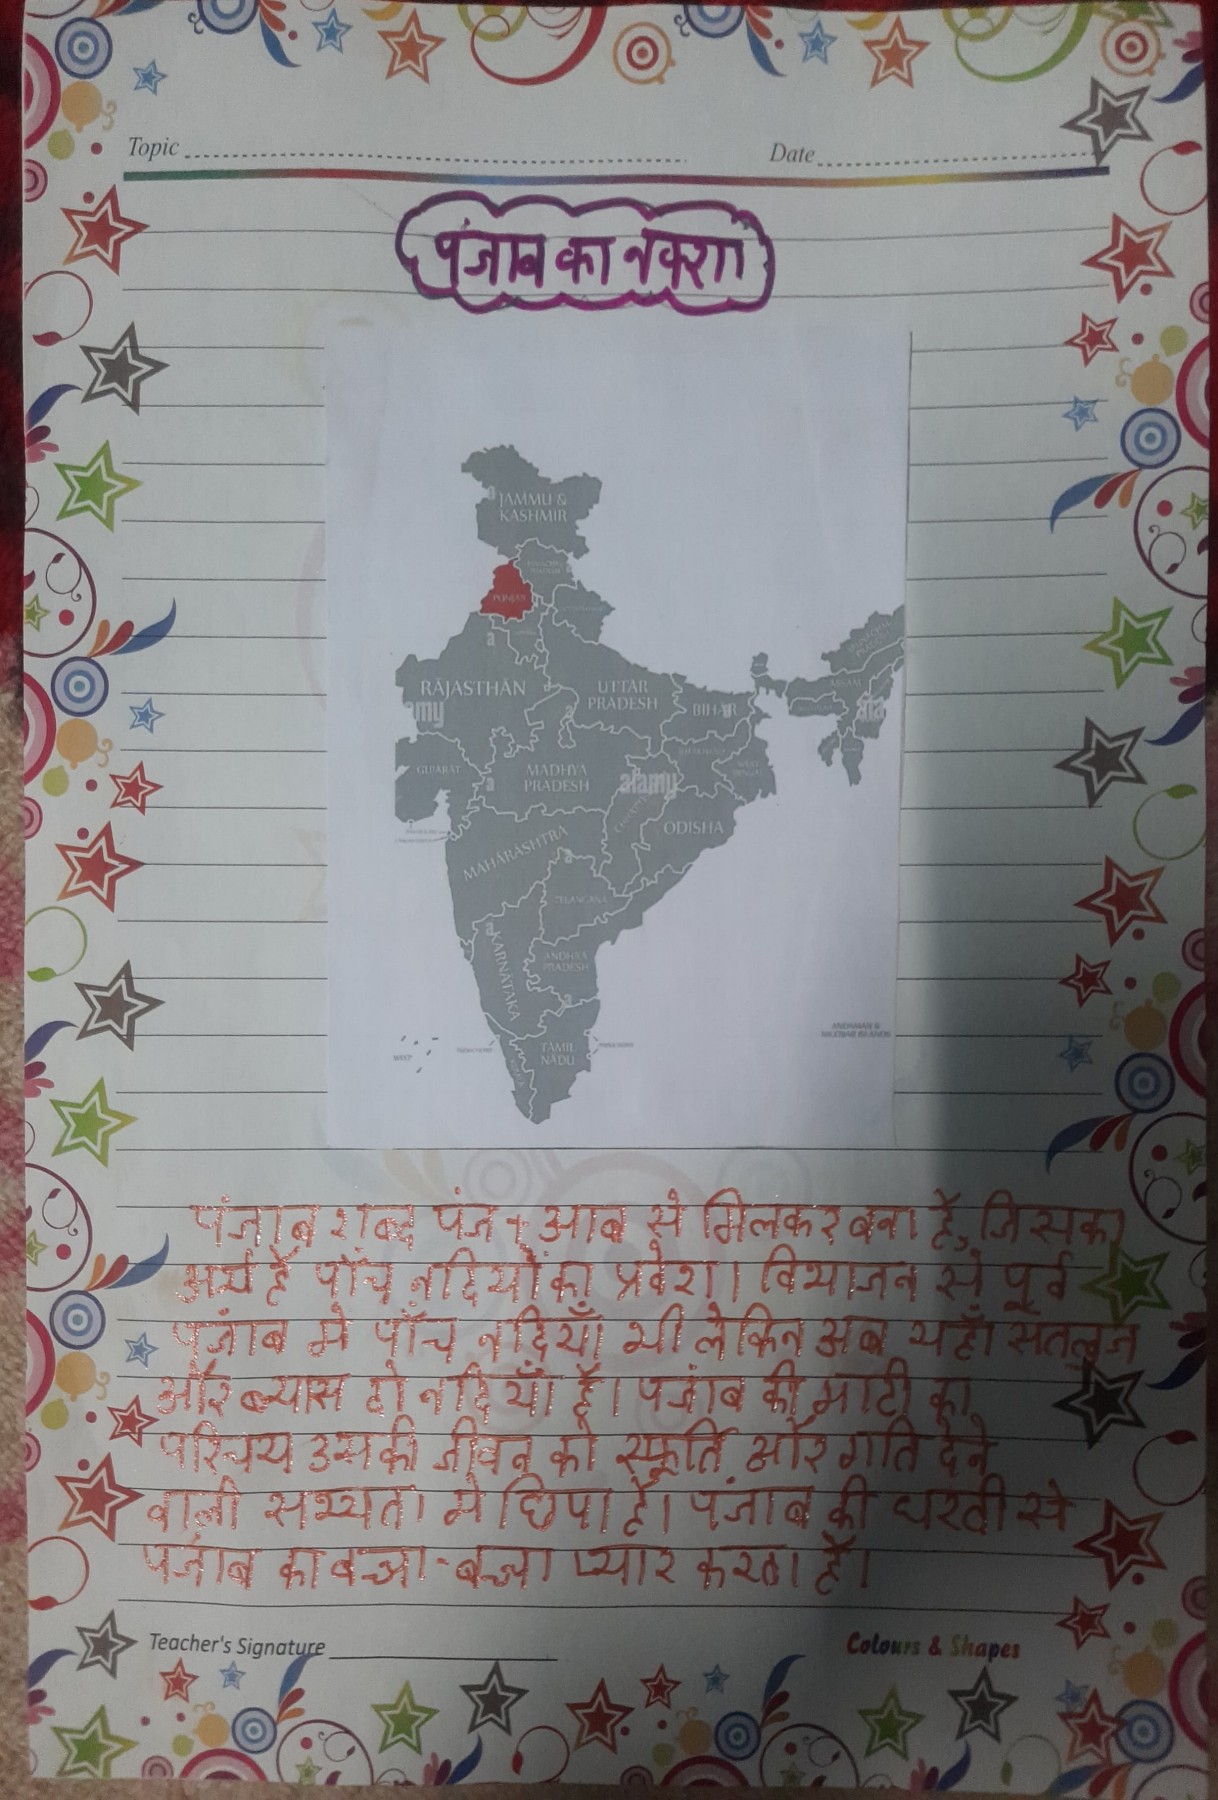 Topic
Date
पंजाब का नक्शा
JAMMU &
KASHMIR
PUNJAB
RĀJASTHĀN
UTTAR
PRADESH
BIHĀR
ASSAM
GUJARĀT
MADHYA
PRADESH
alamy
WEST
BENGAL
ODISHA
MAHĀRĀSHTRA
TELANGANA
KARNĀTAKA
ANDHRA
PRADESH
ANDAMAN &
NICOBAR ISLANDS
TAMIL
NĀDU
पंजाब शब्द पंज + आब से मिलकर बना है, जिसका
अर्थ है पाँच नदियों का प्रवेश। विभाजन से पूर्व
पंजाब मे पाँच नदियाँ थी लेकिन अब यहाँ सतलुज
और ब्यास दो नदियाँ है। पंजाब की माटी का
परिचय उसकी जीवन को स्फूर्ति और गति देने
वाली सभ्यता मे छिपा है। पंजाब की धरती से
पंजाब का बच्चा-बच्चा प्यार करता है।
Teacher's Signature
Colours & Shapes